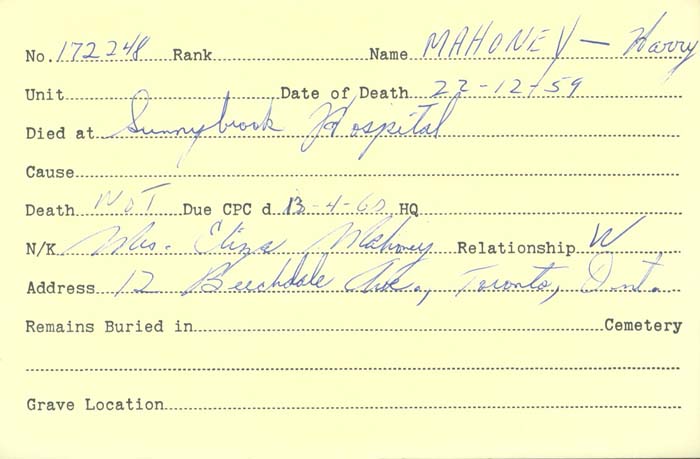 No. 172248 Rank Name MAHONEY - Harry
Unit Date of Death 22-12-59
Died at Sunnybrook Hospital
Cause
Death NOT Due CPC d 13-4-60 HQ
N/K Mrs. Eliza Mahoney Relationship W
Address 12 Beechdale Ave., Toronto, Ont.
Remains Buried in Cemetery
Grave Location